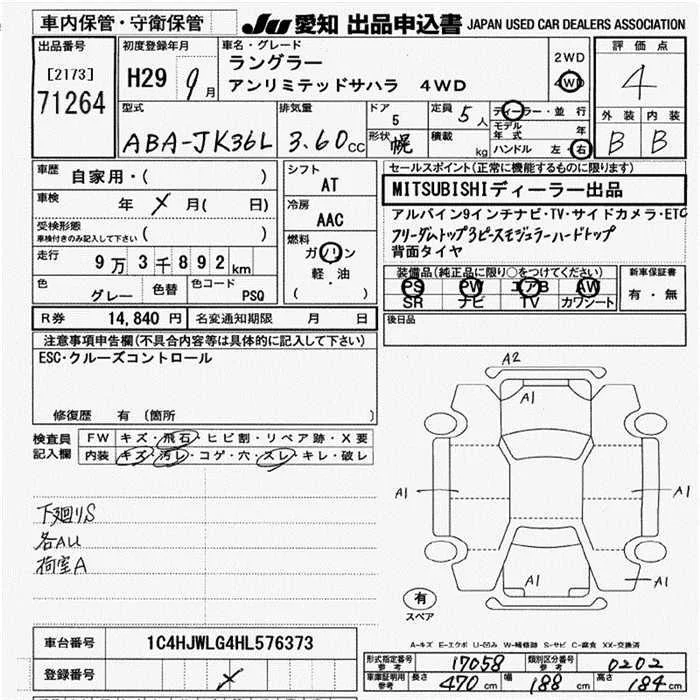 車内保管・守衛保管 JU 愛知 出品申込書 JAPAN USED CAR DEALERS ASSOCIATION
出品番号 [2173] 71264
初度登録年月 H29 9月
車名・グレード ラングラー アンリミテッドサハラ 4WD
2WD 4WD
評価点 4
外装 B 内装 B
型式 ABA-JK36L
排気量 3.60cc
ドア 5
形状 幌
定員 5人
積載 kg
ディーラー・並行
モデル年式 年
ハンドル 左・右
車歴 自家用・( )
車検 年 メ 月( 日)
受検形態 車検付きのみ記入して下さい ( )
走行 9万3千892km
色 グレー 色替 色コード PSQ
シフト AT
冷房 AAC
燃料 ガソリン 軽・油 ( )
セールスポイント(正常に機能するものに限ります)
MITSUBISHIディーラー出品
アルパイン9インチナビ・TV・サイドカメラ・ETC
フリーダムトップ3ピースモジュラーハードトップ
背面タイヤ
装備品(純正品に限り○をつけてください)
PS PW エアB AW
SR ナビ TV カワシート
新車保証書 有・無
R券 14,840円 名変通知期限 月 日
後日品
注意事項申告欄(不具合内容等は具体的に記入して下さい)
ESC・クルーズコントロール
修復歴 有 (箇所 )
検査員記入欄
FW キズ・飛石・ヒビ割・リペア跡・X要
内装 キズ・汚レ・コゲ・穴・スレ・キレ・破レ
下廻りS
各ALL
荷室A
A2
A1
A1
A1
A1
A1
有
スペア
A-キズ E-エクボ U-凹み W-補修跡 S-サビ C-腐食 XX-交換済
車台番号 1C4HJWLG4HL576373
登録番号 メ
型式指定番号 参考 17058 類別区分番号 参考 0202
車庫証明用 参考 長さ 470cm 幅 188cm 高さ 184cm